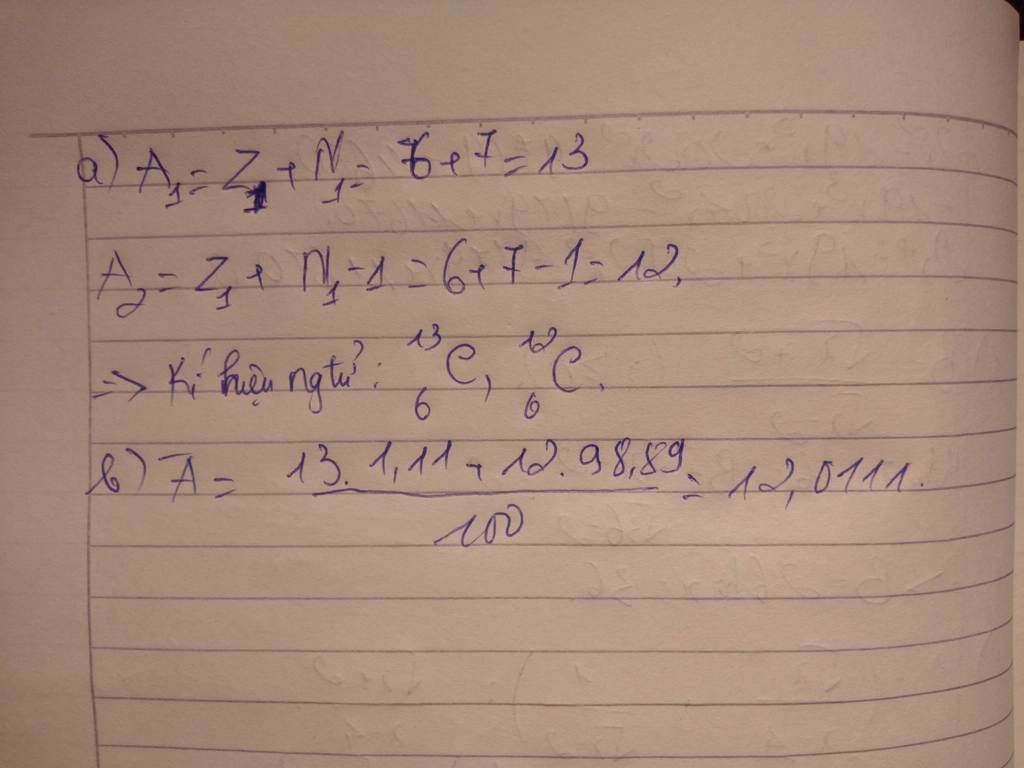 a) A₁ = Z₁ + N₁ = 6 + 7 = 13
A₂ = Z₁ + N₁ - 1 = 6 + 7 - 1 = 12.
=> Kí hiệu ngtử: ¹³₆C, ¹²₆C.
b) A̅ = (13. 1,11 + 12. 98,89)/100 = 12,0111.